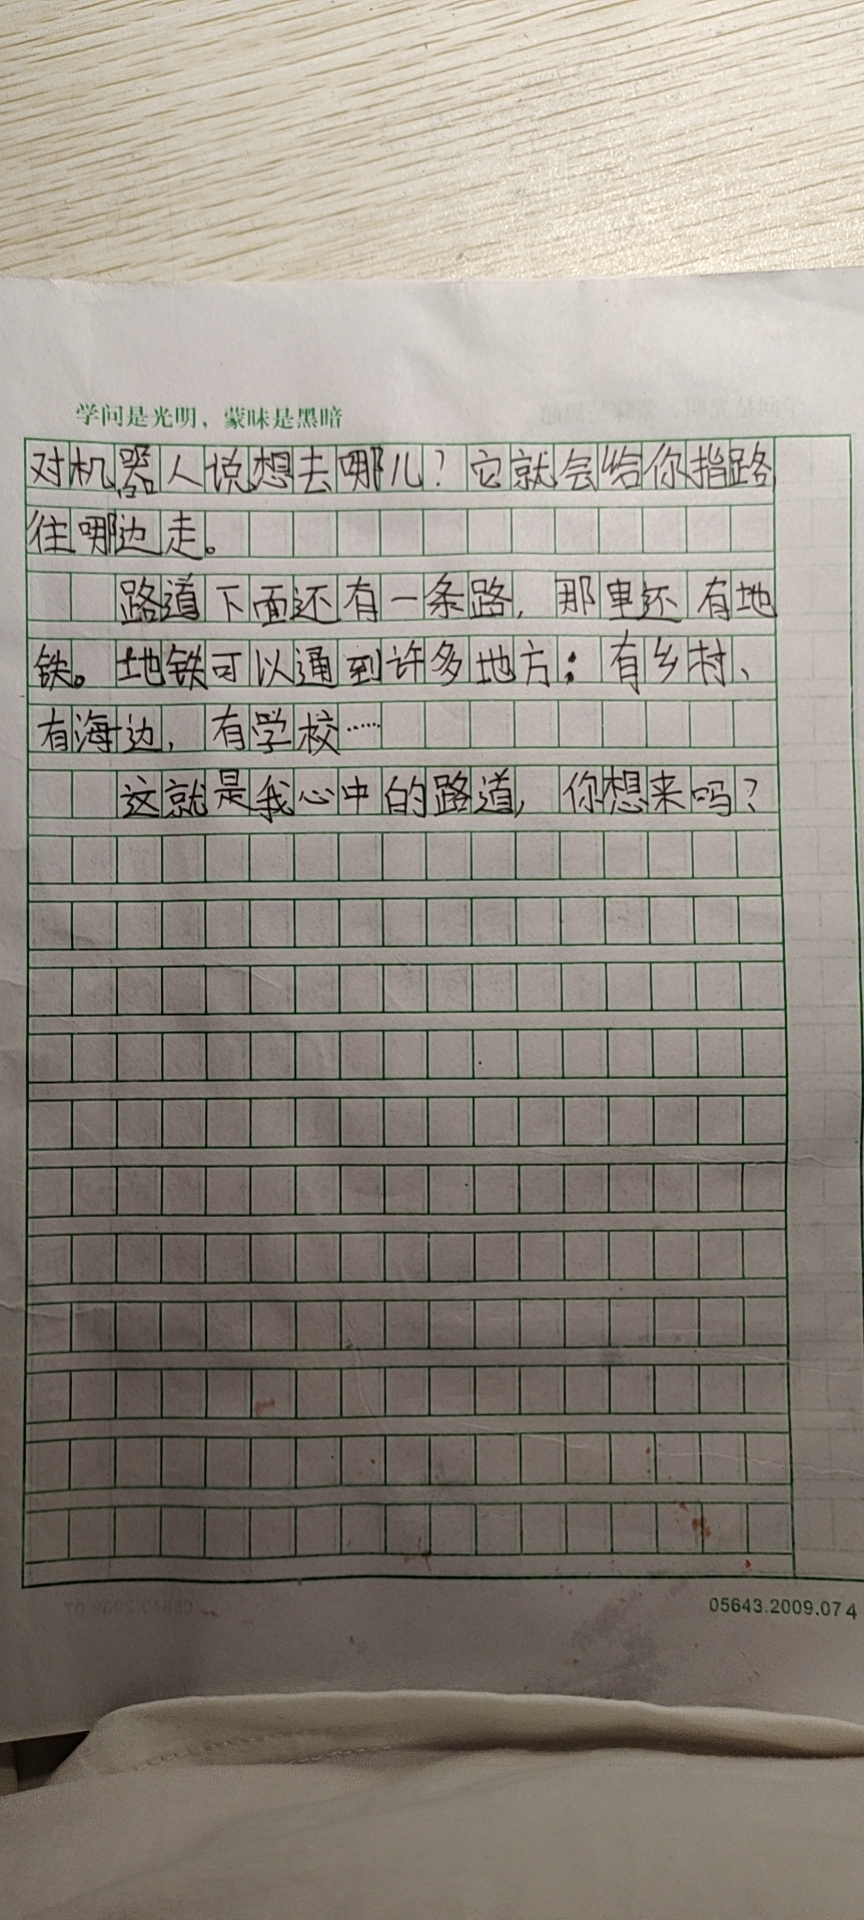 学问是光明，蒙昧是黑暗
对机器人说想去哪儿？它就会给你指路
往哪边走。
路道下面还有一条路，那里还有地
铁。地铁可以通到许多地方；有乡村、
有海边，有学校……
这就是我心中的路道，你想来吗？
05643.2009.074